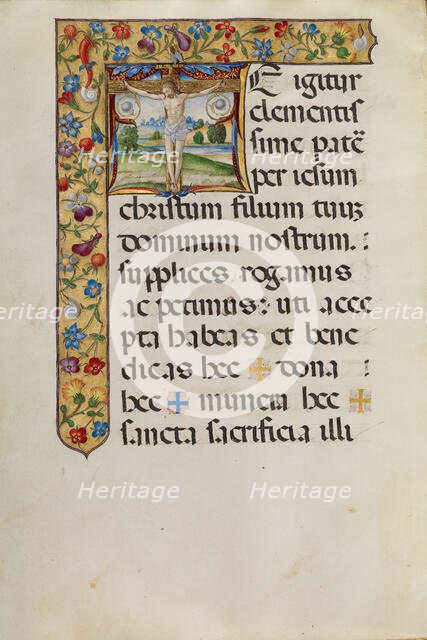 TE igitur
clementis
sime patē
per iesum
christum filium tuuz
dominum nostrum. :
supplices rogamus
ac petimus: uti acce
pta habeas et bene
dicas hec ✠ dona :
hec ✠ munera hec ✠
sancta sacrificia illi
Heritage
Heritage
Heritage
Heritage
Heritage
Heritage